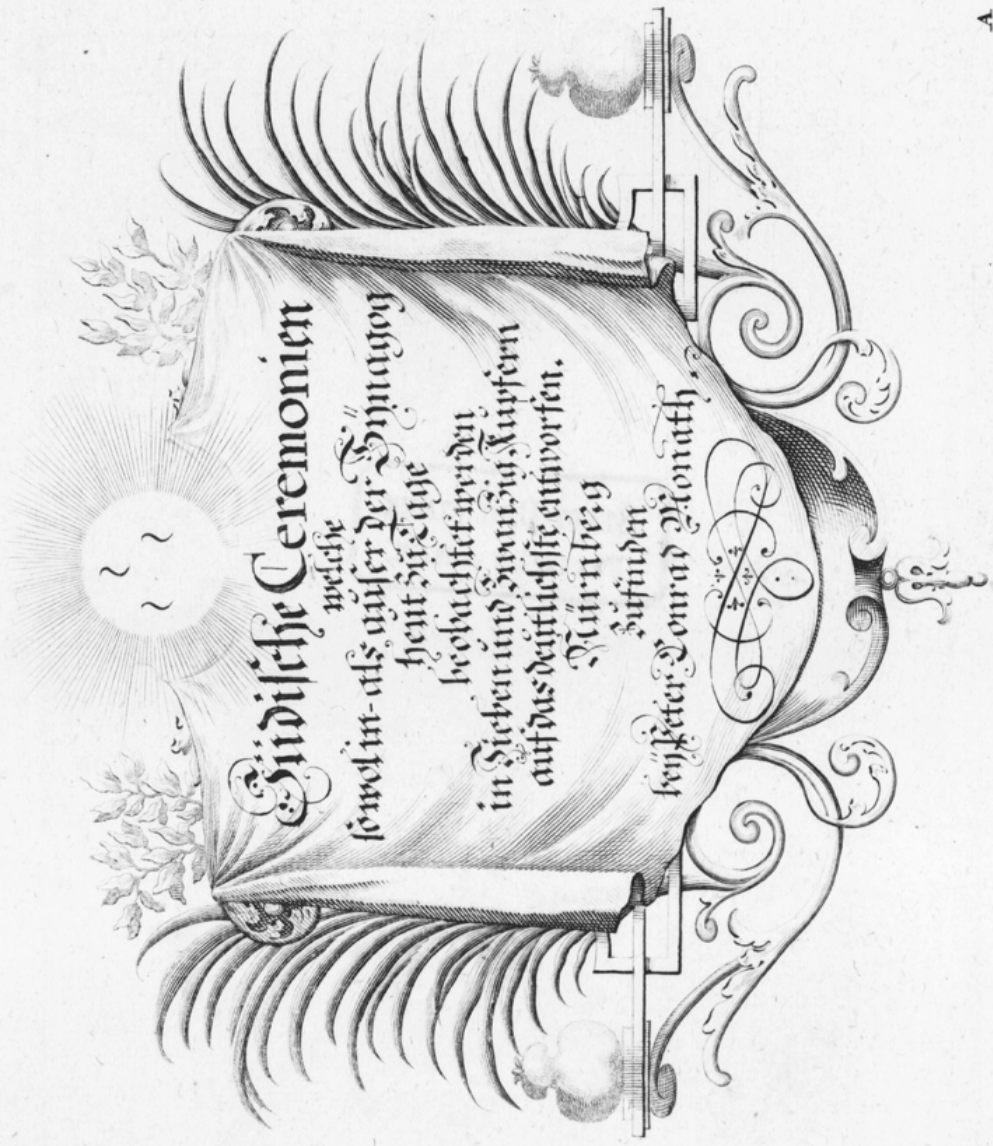 Jüdische Ceremonien
welche
sowol in- als außer der Synagog
heut zu Tage
beobachtet werden
in Sieben und Zwanzig Kupfern
auf das deutlichste entworfen.
Nürnberg
zufinden
beÿ Peter Conrad Monath.
A